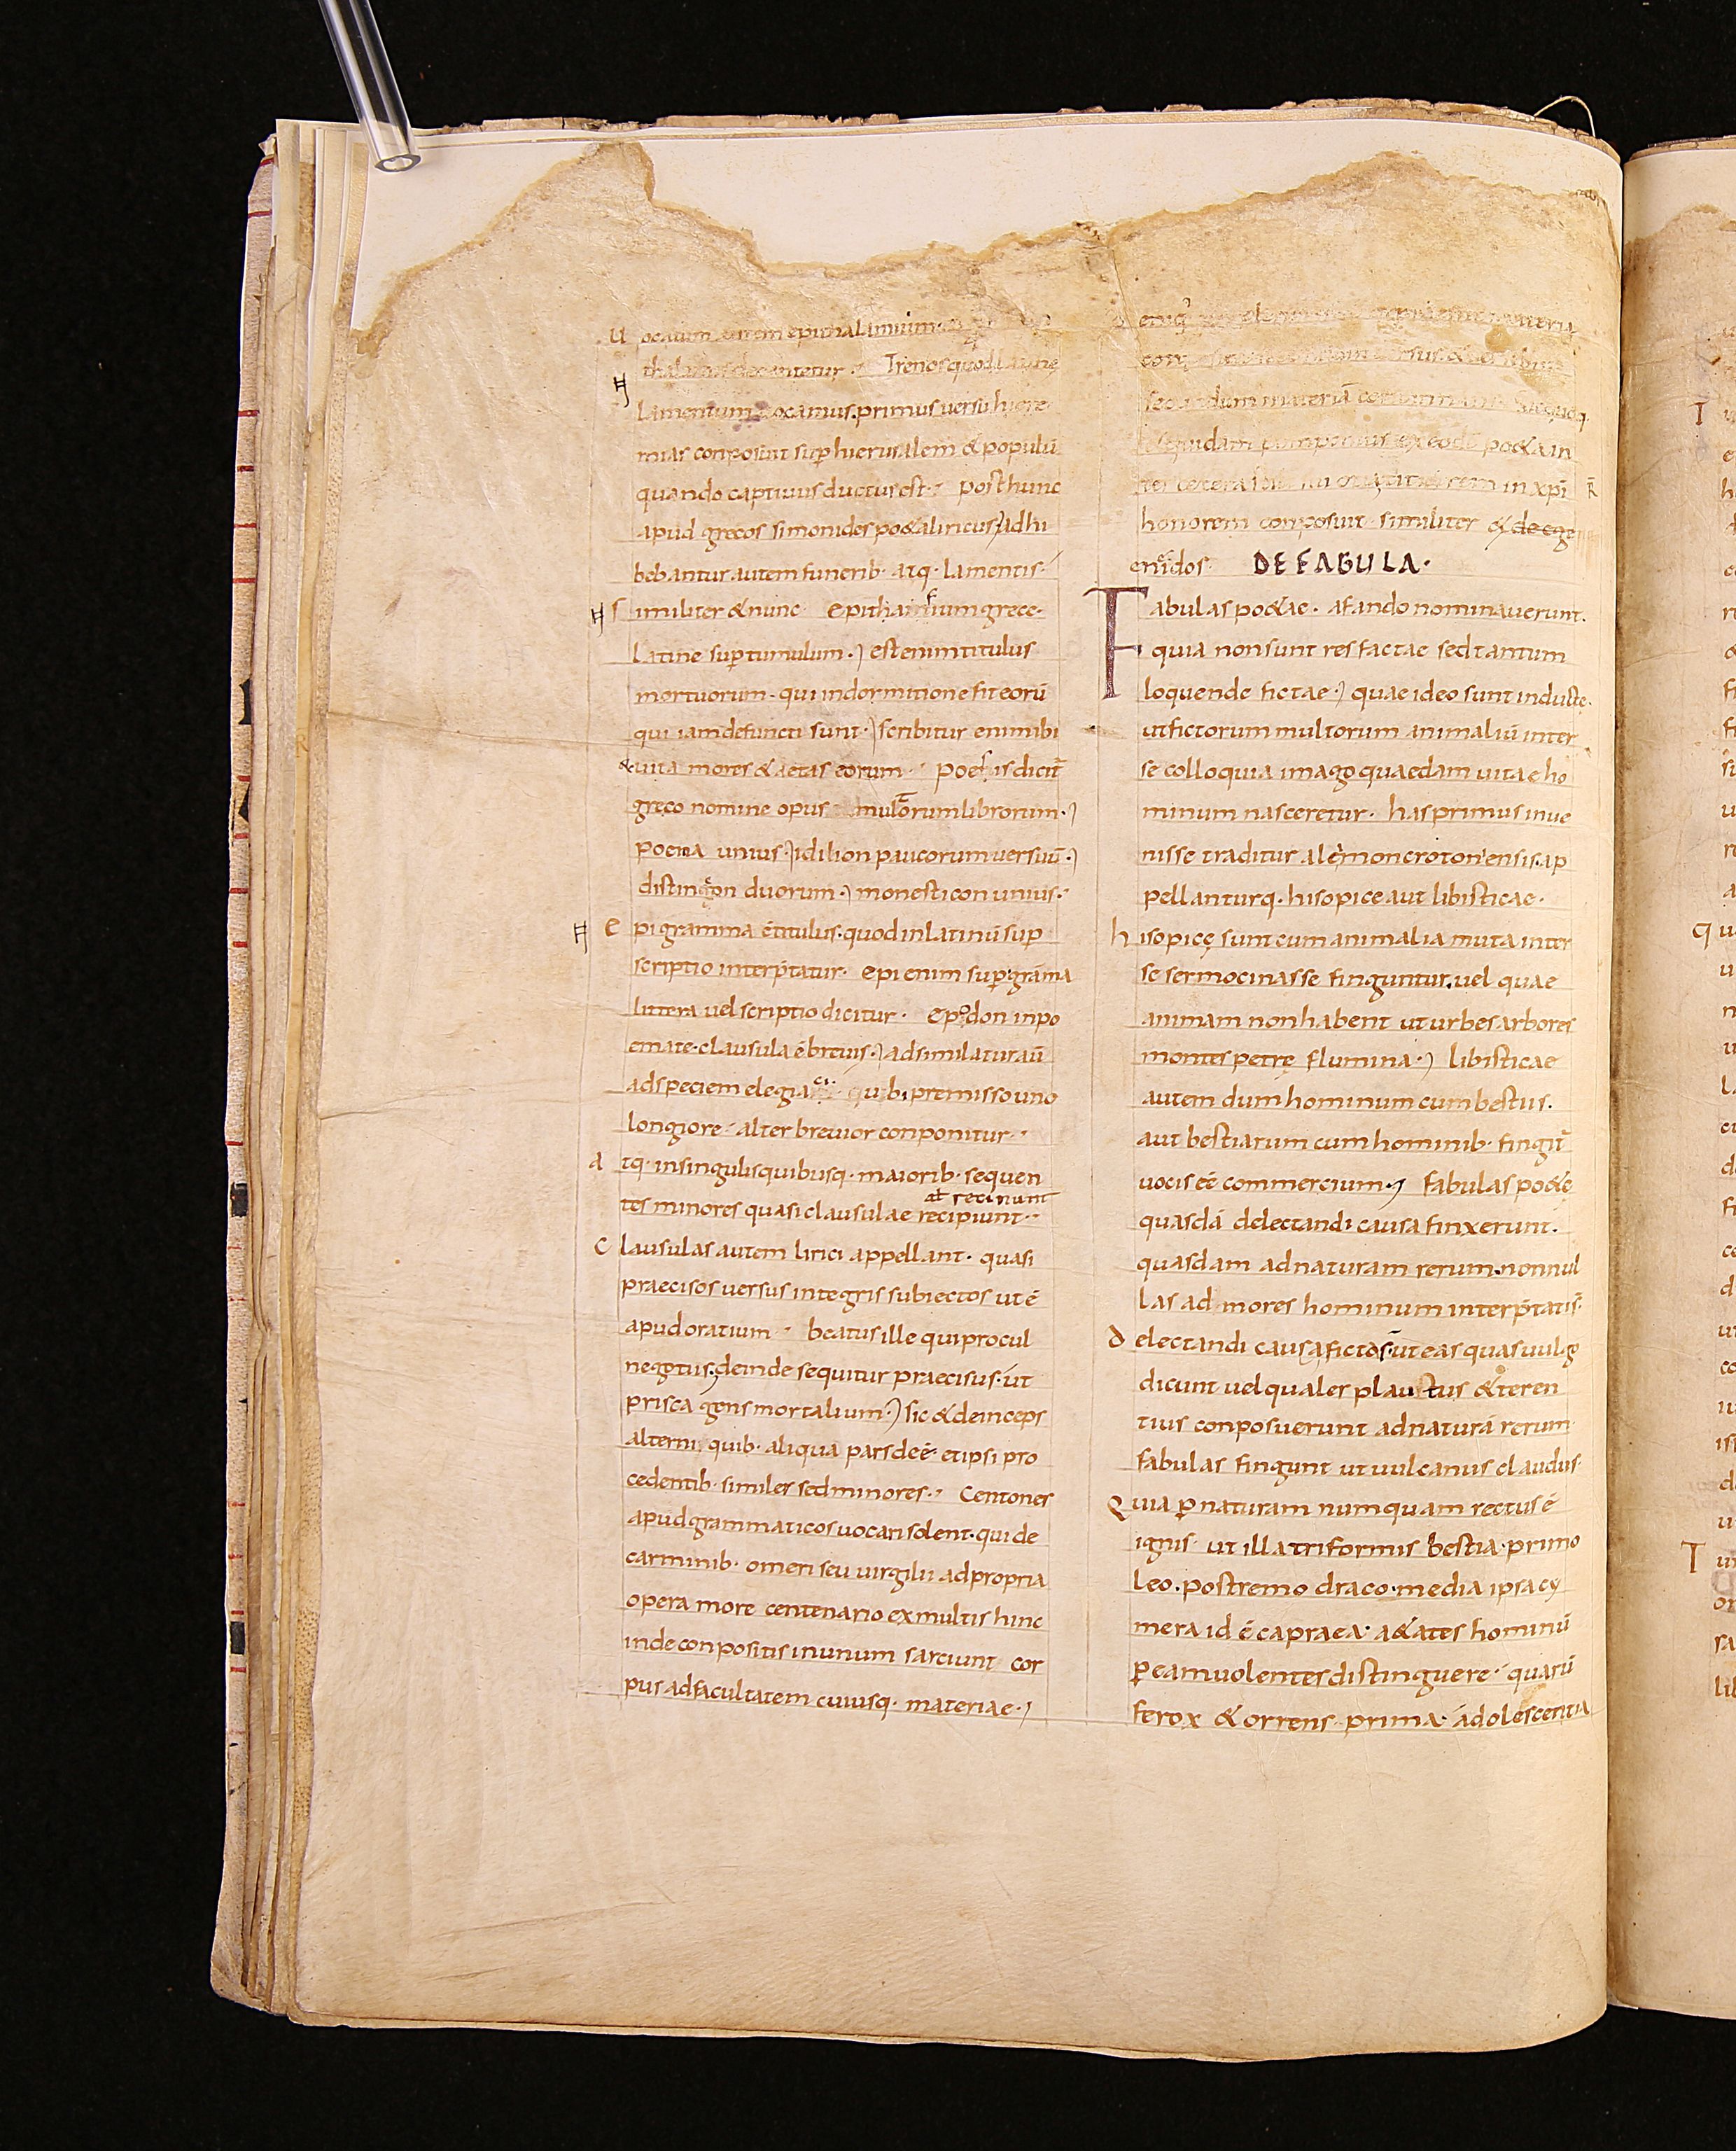 Uocatum autem epithalamium
thalamis decantetur Trenos quod latine
lamentum uocamus. primus uersu hiere
mias conposuit sup hierusalem & populū
quando captiuus ductus est. Post hunc
apud grecos simonides po&a liricus adhi
bebantur autem funerib. atq. lamentis.
Similiter & nunc epithamium grece.
Latine sup tumulum. est enim titulus
mortuorum. qui in dormitione fit eorū
qui iam defuncti sunt. scribitur enim ibi
& uita mores & aetas eorum. Poesis dicit̄
greco nomine opus multorum librorum.
Poema unius. idilion paucorum uersuū.
disticon duorum. monesticon unius.
Epigramma ē titulus. quod in latinū sup
scriptio interp̄tatur. epi enim sup. grāma
littera uel scriptio dicitur. Epodon in po
emate. clausula ē breuis. adsimilatur aū
ad speciem elegiaci. quib. premisso uno
longiore. alter breuior conponitur.
Atq. in singulis quibusq. maiorib. sequen
at recinunt
tes minores quasi clausulae recipiunt.
Clausulas autem lirici appellant. quasi
praecisos uersus integris subiectos ut ē
apud oratium. beatus ille qui procul
negotiis. deinde sequitur praecisus. ut
prisca gens mortalium. sic & deinceps
alterni quib. aliqua pars deē. et ipsi pro
cedentib. similes sed minores. Centones
apud grammaticos uocari solent. qui de
carminib. omeri seu uirgilii ad propria
opera more centenario ex multis hinc
inde conpositis in unum sarciunt cor
pus ad facultatem cuiusq. materiae.
uersus
secundum materiā
quidam po&a in
in xp̄i
honorem composuit. similiter & de ege
eneidos. DE FABULA.
Fabulas po&ae. a fando nominauerunt.
quia non sunt res factae sed tantum
loquende fictae. quae ideo sunt inducte.
ut fictorum multorum animaliū inter
se colloquia imago quaedam uitae ho
minum nasceretur. has primus inue
nisse traditur alemon crotonensis. ap
pellanturq. hisopice aut libisticae.
hisopicę sunt cum animalia muta inter
se sermocinasse finguntur. uel quae
animam non habent ut urbes arbores
montes petrę flumina. libisticae
autem dum hominum cum bestiis.
aut bestiarum cum hominib. fingit̄
uocis eē commercium. fabulas po&ę
quasdā delectandi causa finxerunt.
quasdam ad naturam rerum. nonnul
las ad mores hominum interp̄tatis̄
delectandi causa fictas. ut eas quas uulgo
dicunt uel quales plautus & teren
tius conposuerunt ad naturā rerum
fabulas fingunt ut uulcanus claudus
Quia p naturam numquam rectus ē
ignis. ut illa triformis bestia. primo
leo. postremo draco. media ipsa cy
mera id ē capraea. a&ates hominū
p eam uolentes distinguere. quarū
ferox & orrens prima. adolescentia